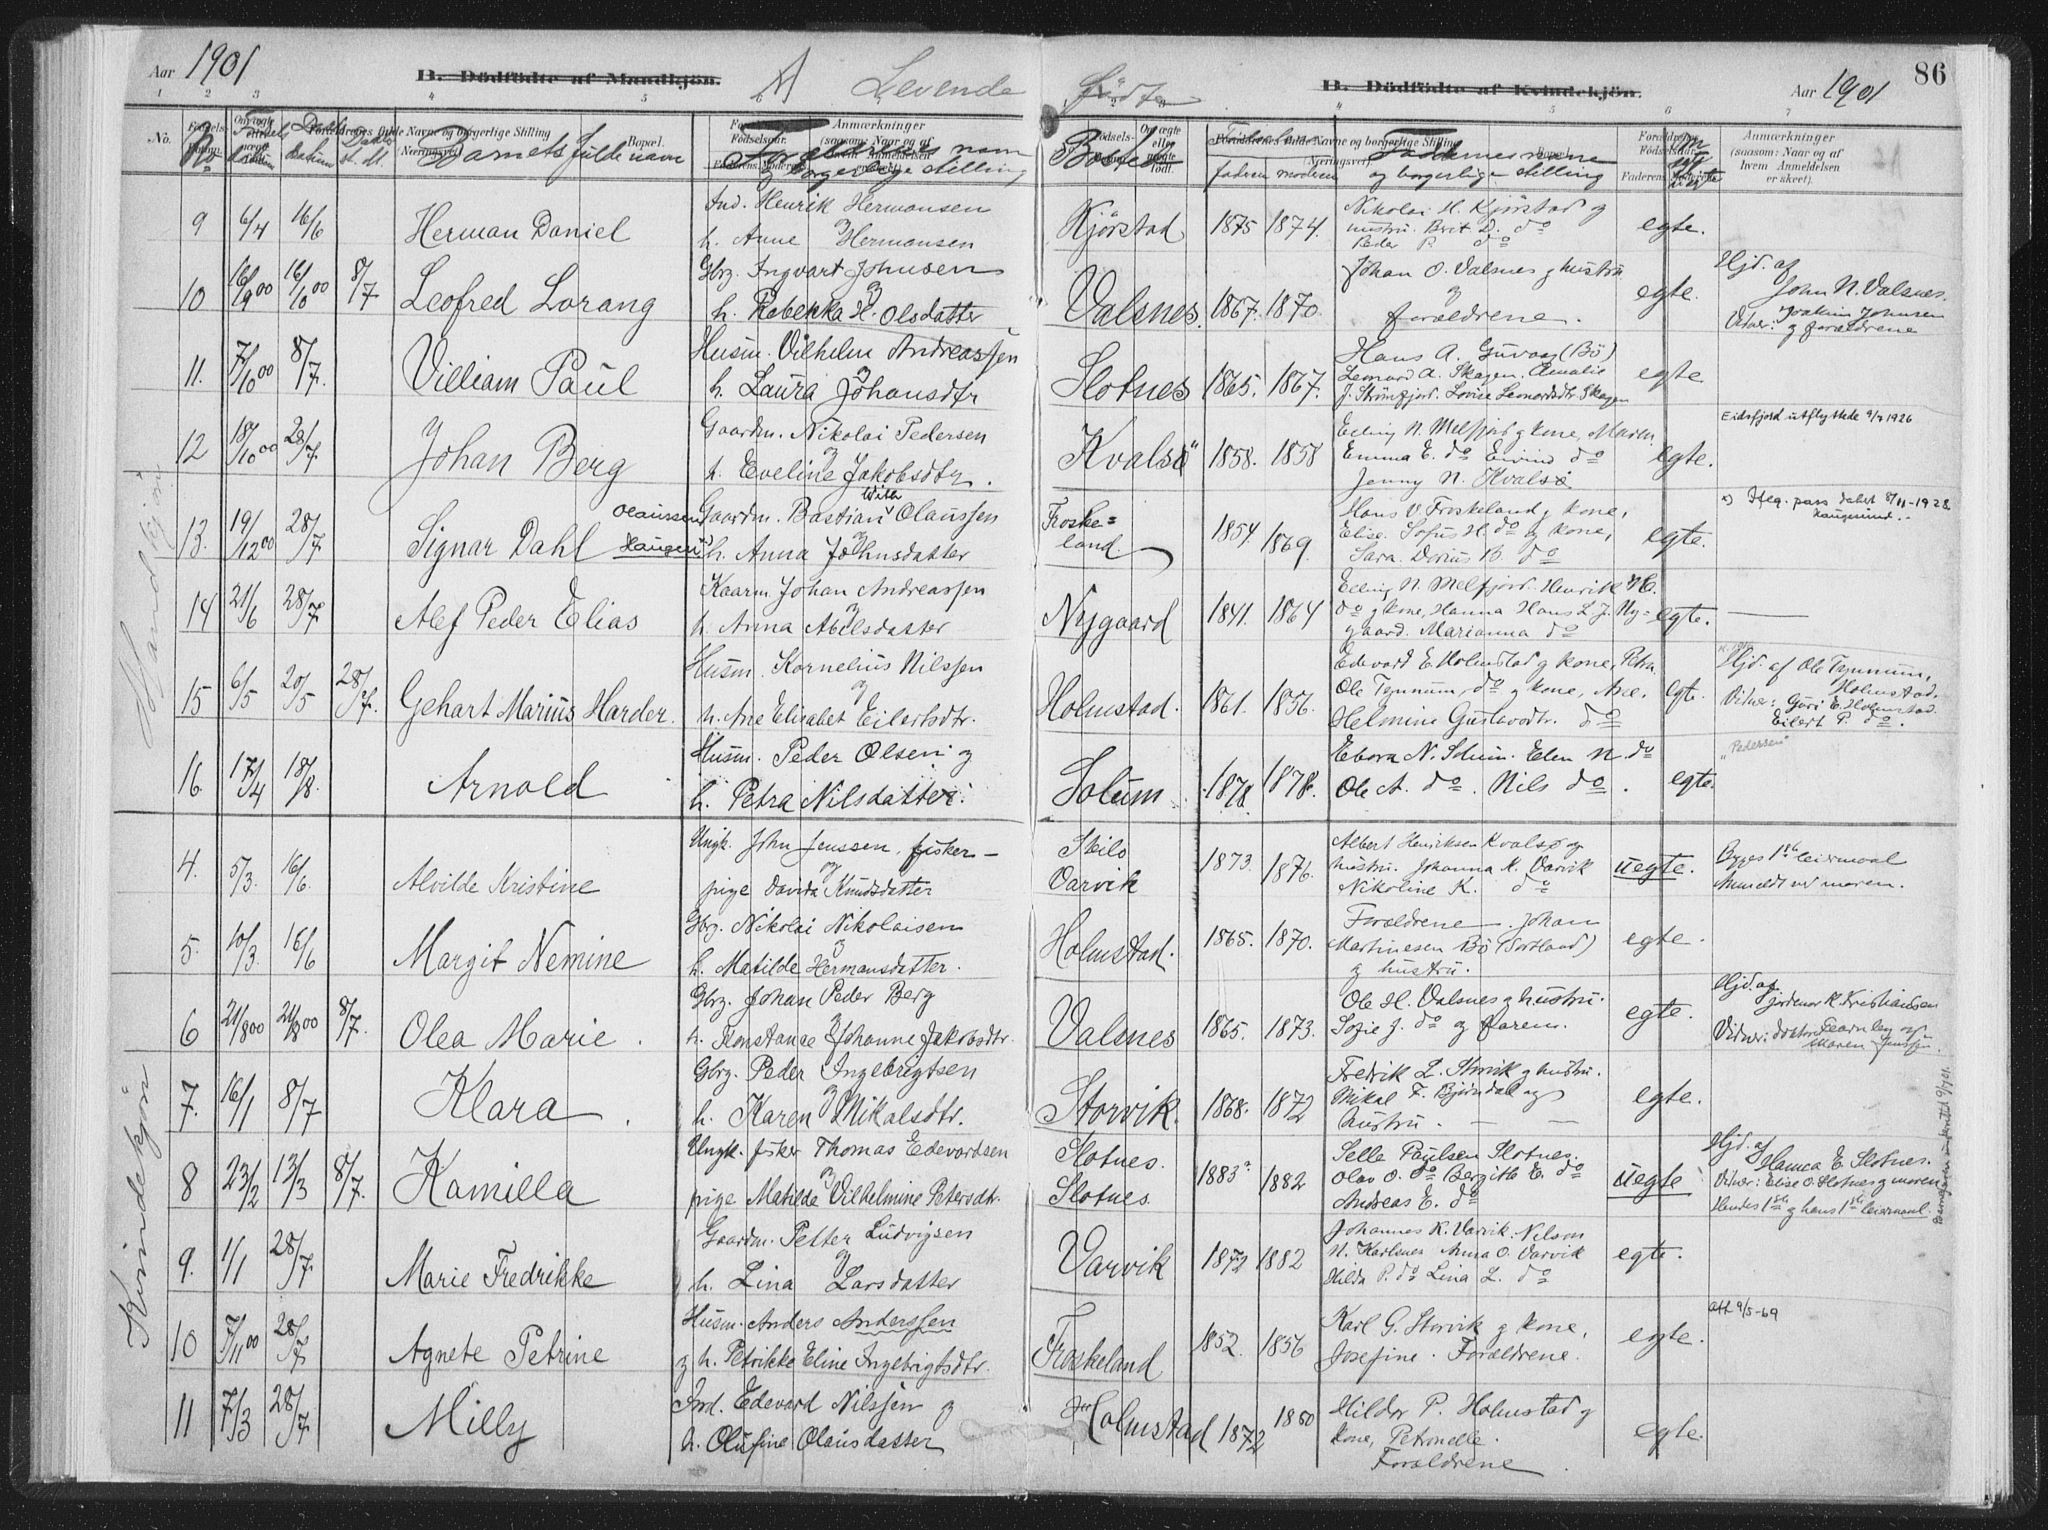 Aar 1901 B. Dödfödte af Mandkjön. A Levende
fødte B. Dödfödte af Kvindekjön. Aar 1901 86
1 2 3 4 5 6
2 4 5 6 7
No. Barnets fulde navn Forældrenes navn og borgerlige stilling
Anmærkninger
(saasom: Naar og af
Bosted faderen moderen Faddernes navne og borgerlige stilling
Anmærkninger
(saasom: Naar og af
hvem Anmeldelsen
er skeet).
Mandkjön
9 6/4 16/6 Herman Daniel Ind. Henrik Hermansen
h. Anne Hermansen
Kjörstad 1875 1874. Nikolai H. Kjörstad og
hustru. Berit D. do
Peder P. do
egte.
10 16/9 00 16/10 00 8/7 Leofred Lorang Gbrg. Ingvart Johnsen
og
h. Rebekka H. Olsdatter
Valsnes. 1867. 1870. Johan O. Valsnes g hustru
og
forældrene.
egte. Hjd. af
John N. Valsnes.
Vidner: Joakim Johnsen
g forældrene
11. 7/10 00 8/7. Villiam Paul Husm. Vilhelm Andreassen
og
h. Laura Johansdtr
Slotnes 1865. 1867. Hans A. Guvaag (Bö)
Leonard A. Skagen. Amalie
J. Strömfjord. Lovise Leonardsdtr. Skagen
egte
12 18/10 00 28/7. Johan Berg Gaardm. Nikolai Pedersen
og
h. Eveline Jakobsdtr.
Kvalsö 1858. 1858 Eding N. Melfjord g kone, Maren
Emma E. do Eivind do
Jenny N. Kvalsö
egte. Eidsfjord utflyttede 9/7 1926
13. 19/12 00 28/7 Signar Dahl Olaussen Haugesu. Gaardm. Bastian With Olaussen
og
h. Anna Johnsdatter
Froske=
land. 1854 1869. Hans V. Froskeland g kone,
Elise. Sofus H. do g kone,
Sara. Dorius B. do
egte. x) Utleg. pass datet 8/11-1928.
Haugesund.
14 21/6 28/7 Alf Peder Elias Kaarm. Johan Andreassen
og
h. Anna Abelsdatter
Nygaard 1841. 1864 Eding N. Melfjord. Henrik N.
do g kone, Hanna Hans L. J. Ny=
gaard. Marianna do
egte.
15 6/5 20/5 28/7. Gehart Marius Harder. Husm. Kornelius Nilssen
og
h. Ane Elisabet Eilertsdtr.
Holmstad. 1861. 1856. Edevard E. Holmstad g kone, Petra
Ole Tynnum, do g kone, Ane.
Helmine Gustavdtr. do
egte. Hjd. af Ole Tynnum,
Holmstad.
Vidner: Guri E. Holmstad.
Eilert P. do.
16. 17/4 18/8. Arnold Husm. Peder Olsen og
h. Petra Nilsdatter.
Solum 1878. 1878. Ebora N. Solum. Elen N. do
Ole A. do. Nils do.
egte. "Pedersen"
Kvindekjön
4. 5/3. 16/6. Alvilde Kristine Ungk. John Jenssen, fisker –
og
pige Davida Knudsdatter
Skilo
Varvik 1873. 1876. Albert Henriksen Kvalsö og
hustru. Johanna K. Varvik
Nikoline K. do
uegte. Begges 1ste leiermaal
Anmeldt ved moren.
5. 10/3. 16/6 Margit Nemine Gbrg. Nikolai Nikolaisen
og
h. Matilde Hermansdatter.
Holmstad. 1865. 1870. Forældrene. Johan
Martinesen Bö (Sortland)
g hustru.
egte.
6 21/8 00 21/8 00 8/7. Olea Marie. Gbrg. Johan Peder Berg
og
h. Konstanse Johanne Jakobsdtr.
Valsnes 1865. 1873. Ole H. Valsnes g hustru.
Sofie J. do og faren.
egte. Hjd. af
jordmor K. Kristiansen
Vidner: doktor Fearnley og
Maren Jenssen.
7. 16/1 8/7 Klara. Gbrg. Peder Ingebrigtsen
og
h. Karen Mikalsdtr.
Storvik. 1868. 1872 Fredrik L. Storvik g hustru.
Mikal F. Björndal og
hustru. – –
egte.
8 23/2 13/3 8/7. Kamilla Ungk. fisker Thomas Edevardsen
og
pige Matilde Vilhelmine Petersdtr.
Slotnes.
Slotnes. 1883. 1882 Selle Paulsen Slotnes.
Olav O. do Bergitte E. do
Andreas E. do
uegte Hjd. af
Hamea E. Slotnes.
Vidner: Elise O. Slotnes g moren
Hendes 1ste g hans 1ste leiermaal.
9. 1/1 28/7 Marie Fredrikke Gaardm. Petter Ludvigsen
og
h. Lina Larsdatter
Varvik 1872 1882 Johannes K. Varvik. Nilson
N. Karlsnes Anna O. Varvik
Hilda P. do Lina L. do
egte.
10 7/11 00 28/7 Agnete Petrine Husm. Anders Anderssen
g h. Petrikke Eline Ingebrigtsdtr.
Froskeland 1852. 1856 Karl G. Storvik g kone,
Josefine. Forældrene.
egte. att 9/5-69
11 7/3 28/7 Milly Ind. Edevard Nilssen og
h. Olufine Olausdatter
Holmstad 1872 1880 Hildor P. Holmstad g
kone, Petronelle.
Forældrene.
egte.